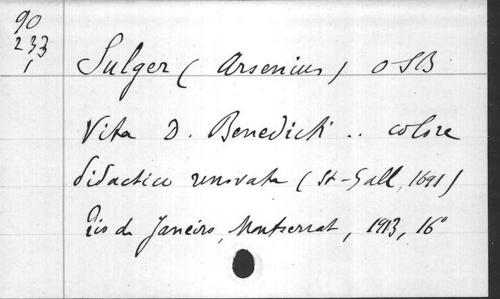 90
233
1
Sulger (Arsenius) OSB
Vita D. Benedicti .. colore
didactico renovata (St-Gall, 1691)
Rio de Janeiro, Montserrat, 1913, 16°